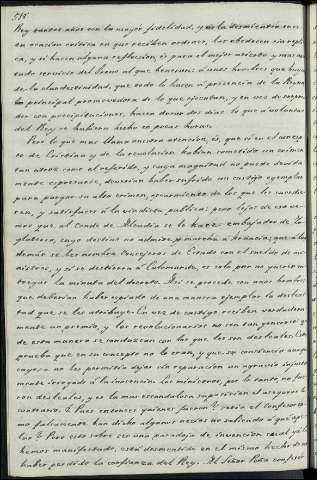 516
Rey tantos años con la mayor fidelidad, y no la desmientan unos
en ocasion critica en que reciben ordenes, las obedecen sin repli-
ca, y si hacen alguna reflecsion, es para el mejor acierto y mas
servicio del Trono al que hicieron á unos hombres que huyen
de la clandestinidad, que todo lo hacen á presencia de la Reyna
la principal promovedora de lo que ejecutan, y en vez de
con precipitaciones, hacen durar dos dias lo que á voluntad
del Rey se hubiera hecho en pocas horas.
Pero lo que mas llama nuestra atencion, es, que si en el concep-
to de Cristina y de la revolucion habian cometido un crimen
tan atroz como el referido, y cuya magnitud no puede debida-
mente espresarse, deverian haber sufrido un castigo ejemplar
para purgar su alto crimen, escarmiento de los que les sucedie-
ran, y satisfaces á la vindicta publica; pero lejos de eso ve-
mos que al Conde de Alcudia se le hace embajador de In-
glaterra, cuyo destino no admite y marcha á Francia; que á los
demás se les nombra Consejeros de Estado con el sueldo de mi-
nistros, y si se destierra á Calomarde, es solo por no querer en-
tregar la minuta del decreto. Asi se procede con unos hombres
que deberian haber espiado de una manera ejemplar la desleal-
tad que se les atribuye. En vez de castigo reciben verdadera-
mente un premio, y los revolucionarios no son tan generosos que
de esta manera se conduzcan con los que les son desleales. Esto
prueba que en su concepto no lo eran, y que su conciencia aunque
no les permitia dejar sin reparacion un agravio injusta-
mente irrogado á la inocencia. Los ministros, por lo tanto, no fue-
ron desleales, y es la mas escandalosa suposicion el asegurar lo
contrario. ¿Pues entonces quienes fueron? ¿seria el Confesor co-
mo falsamente han dicho algunos necios no sabiendo á que
? Pero esto sobre ser una paradoja de invencion ya lo
hemos manifestado, está desmentida en el mismo hecho de no
haber perdido la confianza del Rey. El Señor Peña confesó